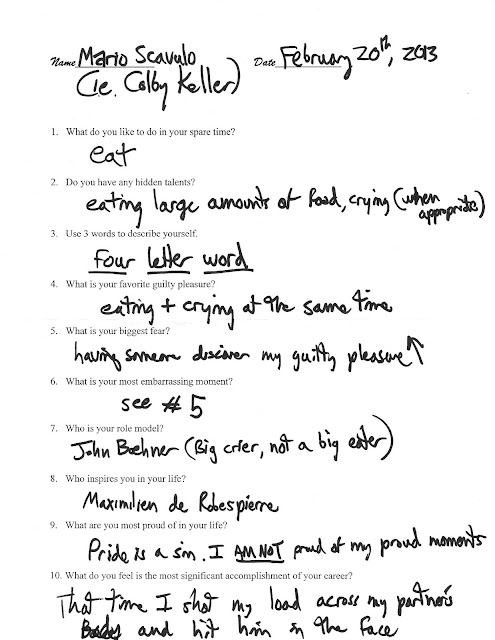 Name Mario Scavulo Date February 20th, 2013
(ie. Colby Keller)
1. What do you like to do in your spare time?
eat
2. Do you have any hidden talents?
eating large amounts of food, crying (when appropriate)
3. Use 3 words to describe yourself.
Four letter word
4. What is your favorite guilty pleasure?
eating + crying at the same time
5. What is your biggest fear?
having someone discover my guilty pleasure ↑
6. What is your most embarrassing moment?
see #5
7. Who is your role model?
John Boehner (Big crier, not a big eater)
8. Who inspires you in your life?
Maximilien de Robespierre
9. What are you most proud of in your life?
Pride is a sin. I AM NOT proud of my proud moments
10. What do you feel is the most significant accomplishment of your career?
That time I shot my load across my partner's
and hit him in the face